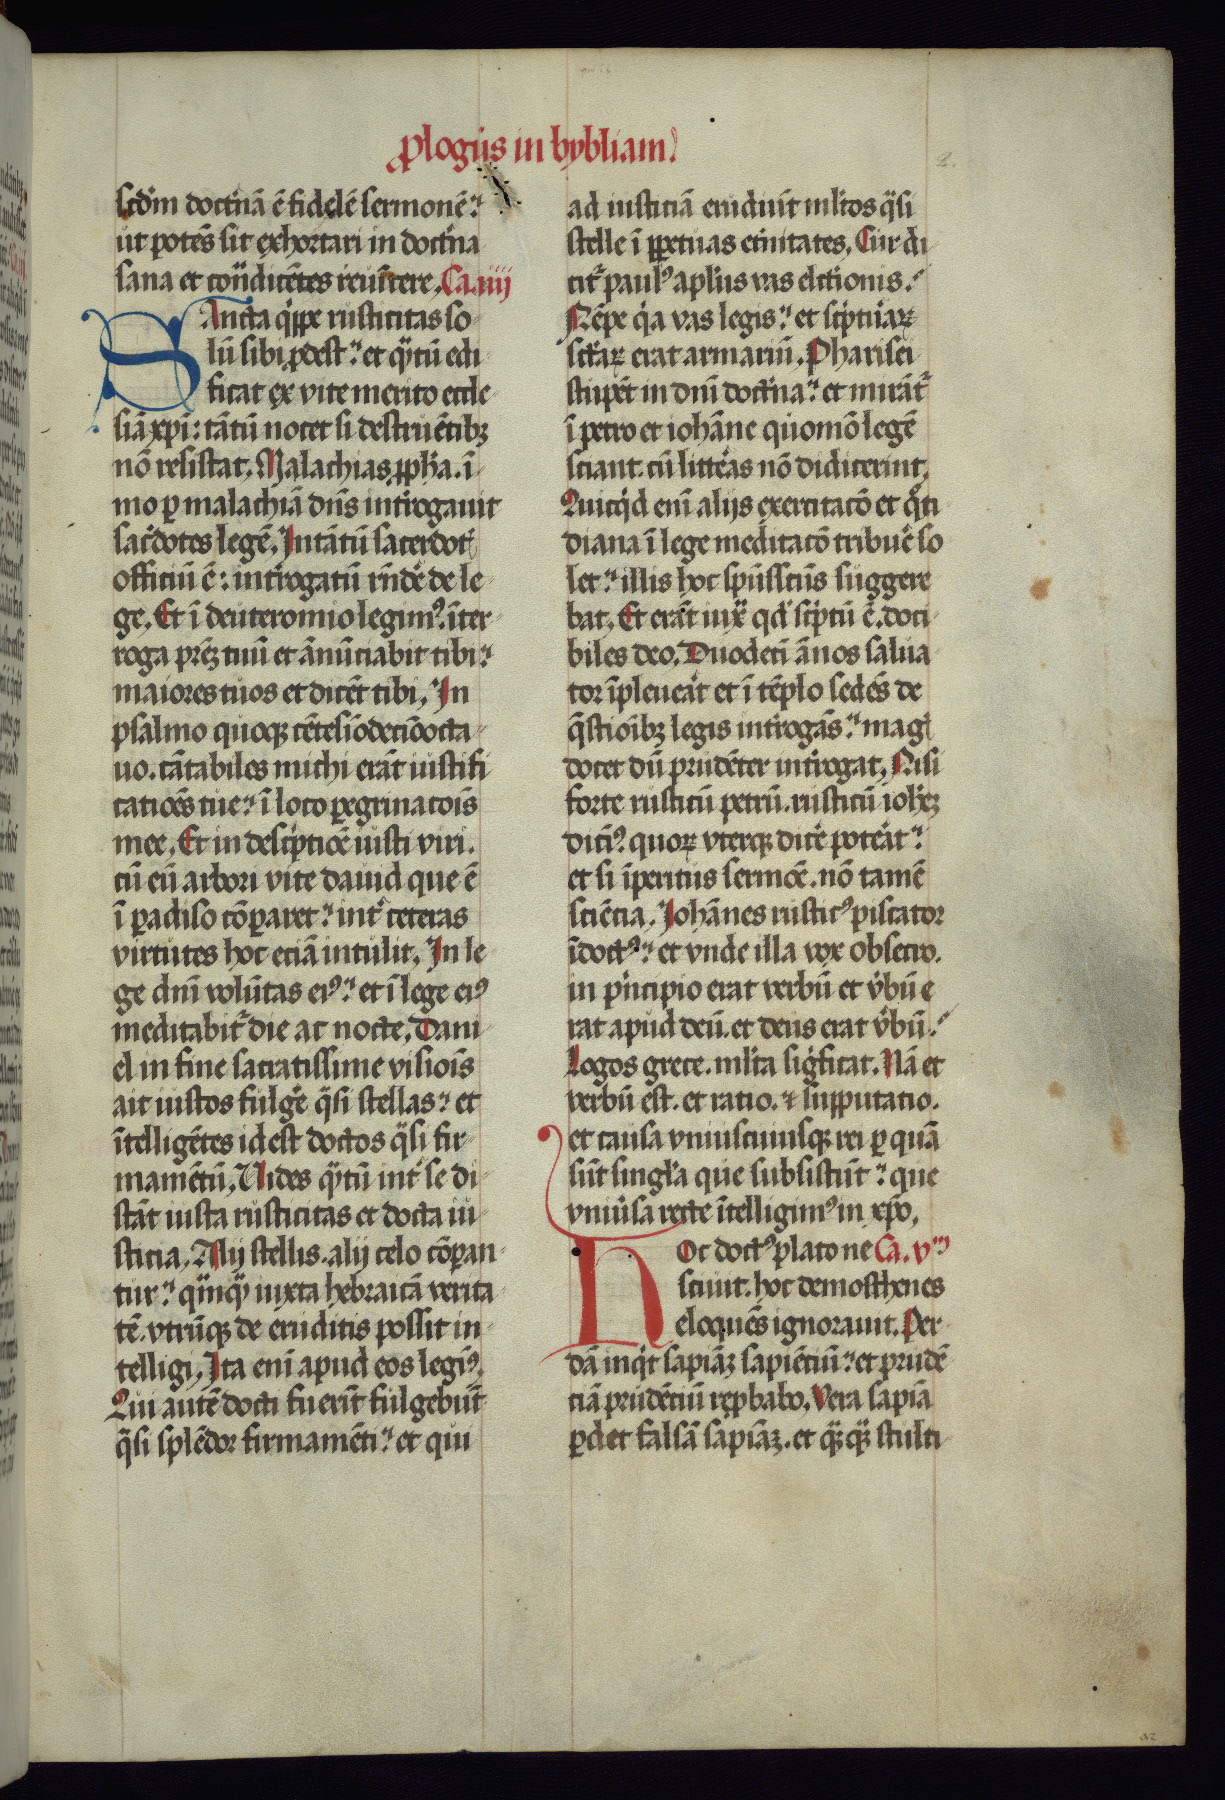 ꝓlogus in bybliam.
2.
scd̄m doctͥnā ē fidelē sermonē:
ut potēs sit exhortari in doctͥna
sana et cōtͣdicētes reuīcere. Ca. iiii
SAncta qͥppe rusticitas so
lū sibi ꝓdest: et qͣtū edi
ficat ex vite merito eccle
siā xp̄i: tātū nocet si destruētibꝫ
nō resistat. Malachias ꝓph̄a. ī
mo ꝑ malachiā dn̄s int̄rogauit
sac̄dotes legē. Intātū sacerdot̄
officiū ē: int̄rogatū rn̄dē de le
ge. Et ī deuteromio legimꝰ. īter
roga pr̄eꝫ tuū et ānūciabit tibi:
maiores tuos et dicēt tibi. In
psalmo quoqꝫ cētesīodecīoocta
uo. cātabiles michi erāt iustifi
catiōes tue: ī loco ꝑegrinacōis
mee. Et in descͥptiōe iusti viri.
cū eū arbori vite dauid que ē
ī ꝑadiso cōꝑaret: int̄ ceteras
virtutes hoc eciā intulit. In le
ge dn̄i volūtas eiꝰ: et ī lege eiꝰ
meditabit̄ die ac nocte. Dani
el in fine sacratissime visiōis
ait iustos fulgē qͣsi stellas: et
ītelligētes id est doctos qͣsi fir
mamētū. Vides qͣtū int̄ se di
stāt iusta rusticitas et docta iu
sticia. Alij stellis. alij celo cōꝑan
tur: qͣmqͣ iuxta hebraicā verita
tē. vtrūqꝫ de eruditis possit in
telligi. Ita enī apud eos legīꝰ.
Qui autē docti fuerīt fulgebūt
qͣsi splēdor firmamēti: et qui
ad iusticiā erudiūt ml̄tos qͣsi
stelle ī ꝑpetuas et̄nitates. Cur di
cit̄ paulꝰ apl̄us vas elc̄tionis.
Nēpe qͥa vas legis: et scͥptūaꝝ
sctāꝝ erat armariū. Pharisei
stupēt in dn̄i doctͥna: et mirāt̄
ī petro et iohāne quomō legē
sciant. cū litt̄as nō didicerint.
Quicqͥd enī alijs exercitacō et qͦti
diana ī lege meditacō tribuē so
let: illis hoc sp̄ussctūs suggere
bat. Et erāt iuxͣ qd̄ scͥptū ē. doci
biles deo. Duodecī ānos salua
tor īpleuāt et ī tēplo sedēs de
qͣstiōibꝫ legis int̄rogās: magͥ
docet dū prudēter int̄rogat. Nisi
forte rusticū petrū. rusticū ioh̄eꝫ
dicīꝰ. quoꝝ vterqꝫ dicē potāt:
et si īperitus sermōe. nō tamē
sciēcia. Iohānes rusticꝰ piscator
īdoctꝰ: et vnde illa vox obsecro.
in pͥncipio erat verbū et v̄bū e
rat apud deū. et deus erat v̄bū.
Logos grece. ml̄ta sigͥficat. Nā et
verbū est. et ratio. et supputatio.
et causa vniuscuiusqꝫ rei ꝑ quā
sūt singl̄a que subsistūt: que
vniūsa recte ītelligimꝰ in xp̄o.
HOc doctꝰ plato ne Ca. vᵐ
sciuit. hoc demosthenes
eloquēs ignorauit. Per
dā inqͥt sapiāꝫ sapiētiū: et prudē
ciā prudētiū rep̱babo. Vera sapiā
ꝑdet falsā sapiāꝫ. et qͣꝫqͣꝫ stulti